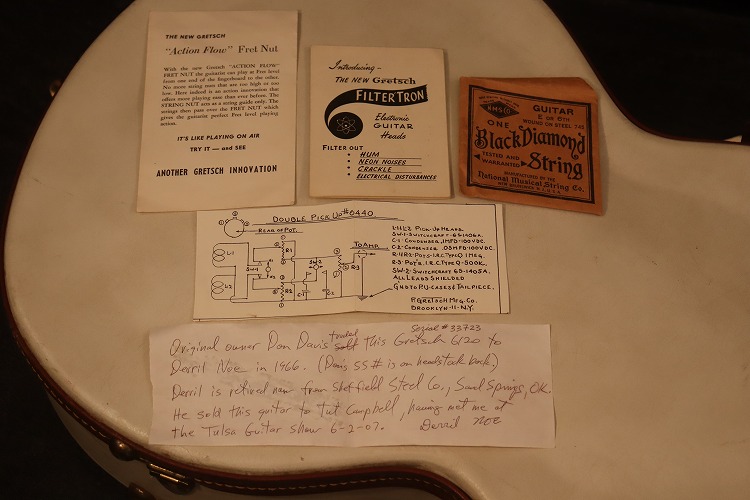 THE NEW GRETSCH
"Action Flow" Fret Nut
With the new Gretsch "ACTION FLOW"
FRET NUT the guitarist can play at Fret level
from one end of the fingerboard to the other.
No more string nuts that are too high or too
low. Here indeed is an action innovation that
offers more playing ease than ever before. The
STRING NUT acts as a string guide only. The
strings then pass over the FRET NUT which
gives the guitarist perfect Fret level playing
action.
IT'S LIKE PLAYING ON AIR
TRY IT — and SEE
ANOTHER GRETSCH INNOVATION
Introducing-
THE NEW Gretsch
FILTER'TRON
Electronic
GUITAR
Heads
FILTER OUT
• HUM
• NEON NOISES
• CRACKLE
• ELECTRICAL DISTURBANCES
N.M.S.Co.
GUITAR
E OR 6TH
WOUND ON STEEL
ONE
Black Diamond
TESTED AND
WARRANTED
String
MANUFACTURED BY THE
National Musical String Co.
NEW BRUNSWICK, N.J. U.S.A.
DOUBLE PICK UP #6440
REAR OF POT.
L1
L2
SW-1
R1
R2
SW-2
C-1
C-2
R-3
TO AMP.
L1&L2 PICK-UP HEADS.
SW-1-SWITCHCRAFT-GS-1405A.
C-1-CONDENSER .1MFD-100VDC.
C-2-CONDENSER .05MFD-100VDC.
R-1&R2-POTS-I.R.C. TYPE Q 1 MEG.
R-3-POT'R. I.R.C. TYPE Q-500K.
SW-2-SWITCHCRAFT GS-1405A.
ALL LEADS SHIELDED
GND TO P.U-CASES & TAILPIECE.
F. GRETSCH MFG. CO.
BROOKLYN-11-N.Y.
Serial # 33723
Original owner Don Davis traded sold this Gretsch 6120 to
Derril Noe in 1966. (Davis SS # is on headstock back.)
Derril is retired now from Sheffield Steel Co., Sand Springs, OK.
He sold this guitar to Tut Campbell, having met me at
the Tulsa Guitar show 6-2-07. Derril Noe